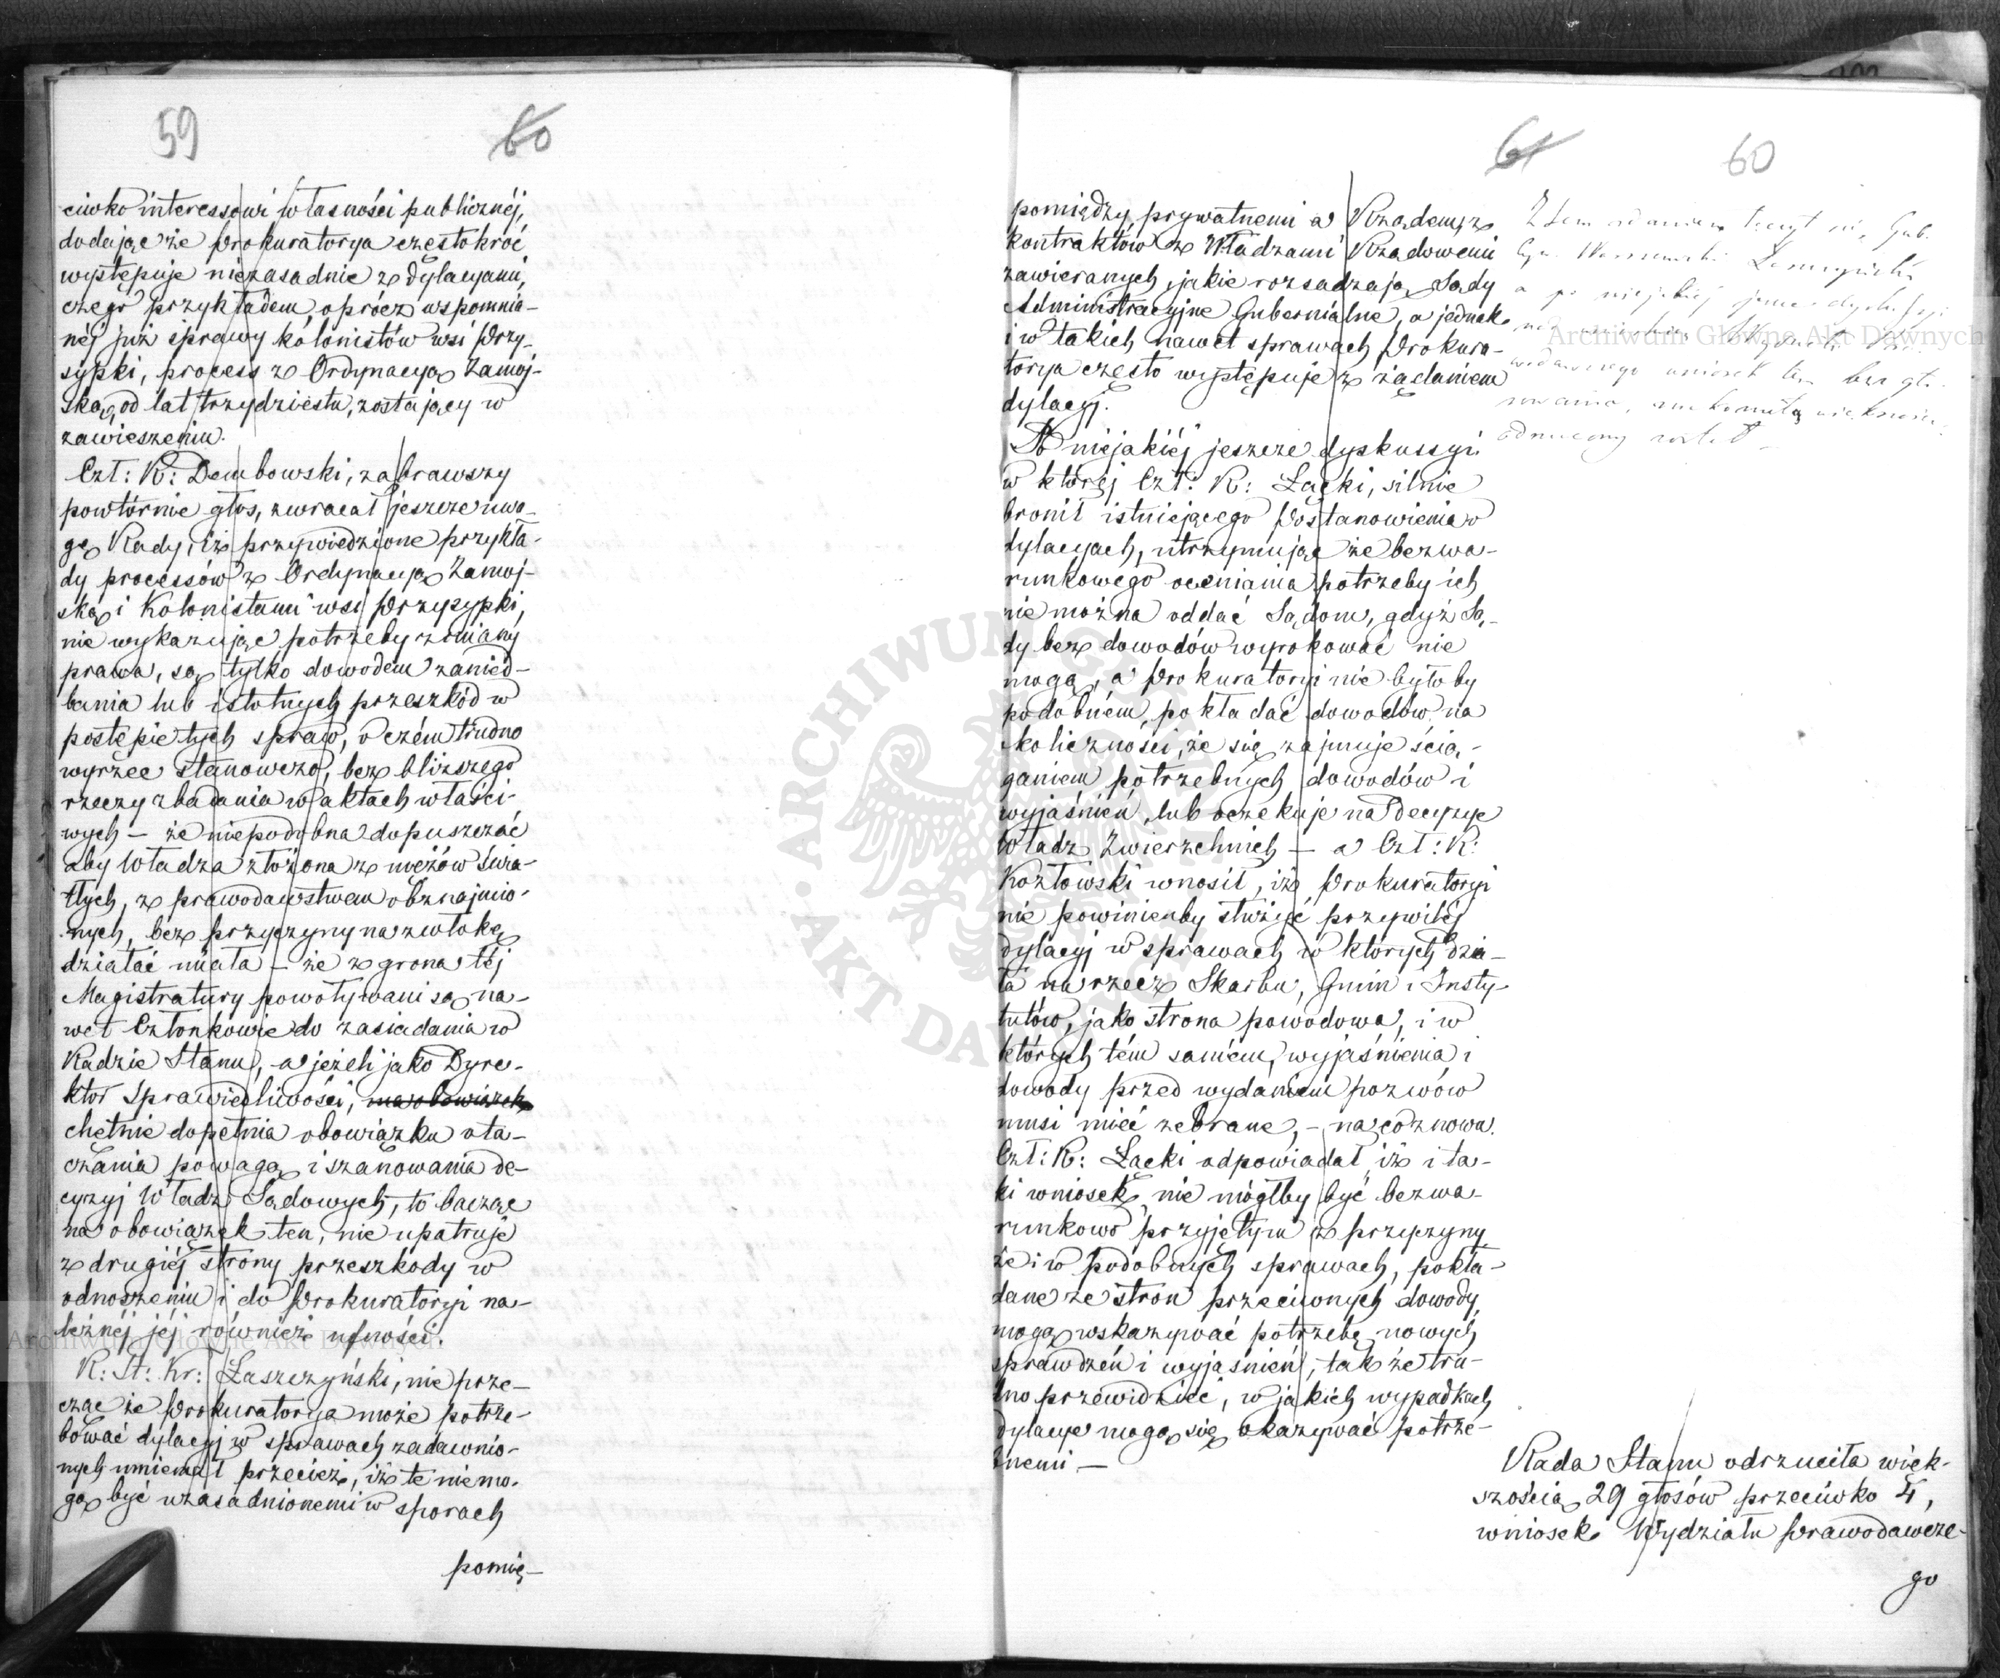 59
60
ciwko interessowi własności publicznéj,
dodając że Prokuratorya częstokroć
występuje niezasadnie z dylacyami,
czego przykładem, oprócz wspomnia-
néj już sprawy kolonistów wsi Przy-
sypki, process z Ordynacyą Zamoj-
ską, od lat trzydziestu, zostający w
zawieszeniu.
Czł: R: Dembowski, zabrawszy
powtórnie głos, zwracał jeszcze uwa-
gę Rady, iż przywiedzione przykła-
dy processów z Ordynacyą Zamoj-
ską i Kolonistami wsi Przysypki,
nie wykazując potrzeby zmiany
prawa, są tylko dowodem zanied-
bania lub istotnych przeszkód w
postępie tych spraw, o czém trudno
wyrzec stanowczo, bez bliższego
rzeczy zbadania w aktach właści-
wych — że niepodobna dopuszczać
aby Władza złożona z mężów świa-
tłych, z prawodawstwem obznajmio-
nych, bez przyczyny na zwłokę
działać miała — że z grona téj
Magistratury powoływani są na-
wet Członkowie do zasiadania w
Radzie Stanu, a jeżeli jako Dyre-
ktor Sprawiedliwości, ma obowiązek
chętnie dopełnia obowiązku ota-
czania powagą i szanowania de-
cyzyj Władz Sądowych, to bacząc
na obowiązek ten, nie upatruje
z drugiéj strony przeszkody w
odnoszeniu i do Prokuratoryi na-
leżnéj jéj również ufności.
R: St: Kr: Łaszczyński, nie prze-
cząc że Prokuratorya może potrze-
bować dylacyj w sprawach zadawnio-
nych umiemał przecież, iż te nie mo-
gą być uzasadnionemi w sporach
pomię-
61
60
pomiędzy prywatnemi a Rządem, z
kontraktów z Władzami Rządowemi
zawieranych, jakie rozsądzają Sądy
Administracyjne Gubernialne, a jednak
i w takich nawet sprawach Prokura-
torya często występuje z żądaniem
dylacyj.
Po niejakiéj jeszcze dyskussyi
w któréj Czł: R: Łącki, silnie
bronił istniejącego Postanowienia o
dylacyach, utrzymując że bezwa-
runkowego oceniania potrzeby ich
nie można oddać Sądom, gdyż Są-
dy bez dowodów wyrokować nie
mogą, a Prokuratoryi nie byłoby
podobném, pokładać dowodów na
okoliczności, że się zajmuje ścią-
ganiem potrzebnych dowodów i
wyjaśnień, lub oczekuje na decyzye
Władz Zwierzchnich — a Czł: R:
Kozłowski wnosił, iż Prokuratoryi
nie powinienby służyć przywiléj
dylacyj w sprawach w których dzia-
ła na rzecz Skarbu, Gmin i Insty-
tutów, jako strona powodowa, i w
których tém samém, wyjaśnienia i
dowody przed wydaniem pozwów
musi mieć zebrane, — na co znowu
Czł: R: Łącki odpowiadał, iż i ta-
ki wniosek, nie mógłby być bezwa-
runkowo przyjętym z przyczyny
że i w podobnych sprawach, pokła-
dane ze stron przeciwnych dowody,
mogą wskazywać potrzebę nowych
sprawdzeń i wyjaśnień, tak że tru-
dno przewidzieć, w jakich wypadkach
dylacye mogą się okazywać potrze-
bnemi —
Rada Stanu odrzuciła więk-
szością 29 głosów przeciwko 4,
wniosek Wydziału Prawodawcze-
go
Archiwum Główne Akt Dawnych
Archiwum Główne Akt Dawnych
ARCHIWUM GŁÓWNE
AKT DAWNYCH